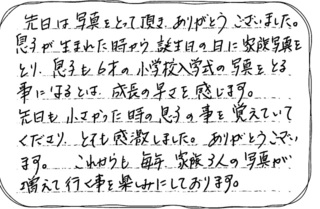 先日は写真をとって頂き、ありがとうございました。
息子が生まれた時から誕生日の日に家族写真を
とり、息子も6才の小学校入学式の写真をとる
事になるとは、成長の早さを感じます。
先日も小さかった時の息子の事を覚えていて
くださり、とても感激しました。ありがとうござい
ます。これからも毎年、家族3人の写真が
増えて行く事を楽しみにしております。